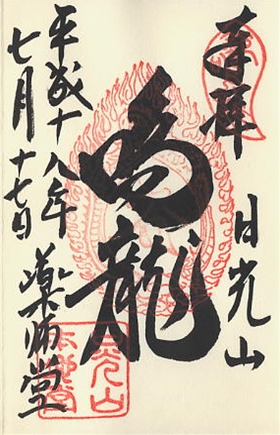 奉拝
日光山
鳴龍
薬師堂
平成十八年
七月十七日